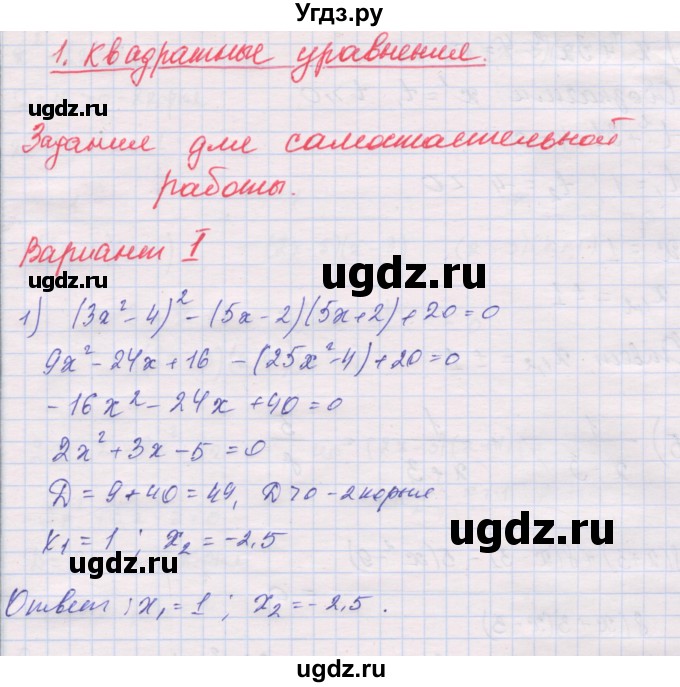 Угдз.ру
1. Квадратные уравнения.
ugdz.ru ugdz.ru
Задания для самостоятельной
работы.
Вариант I
ugdz.ru ugdz.ru
1) (3x² - 4)² - (5x - 2)(5x + 2) + 20 = 0
9x² - 24x + 16 - (25x² - 4) + 20 = 0
- 16x² - 24x + 40 = 0
ugdz.ru
2x² + 3x - 5 = 0
D = 9 + 40 = 49, D > 0 - 2 корня
ugdz.ru
x₁ = 1 ; x₂ = -2,5
Ответ: x₁ = 1 ; x₂ = -2,5.
ugdz.ru ugdz.ru